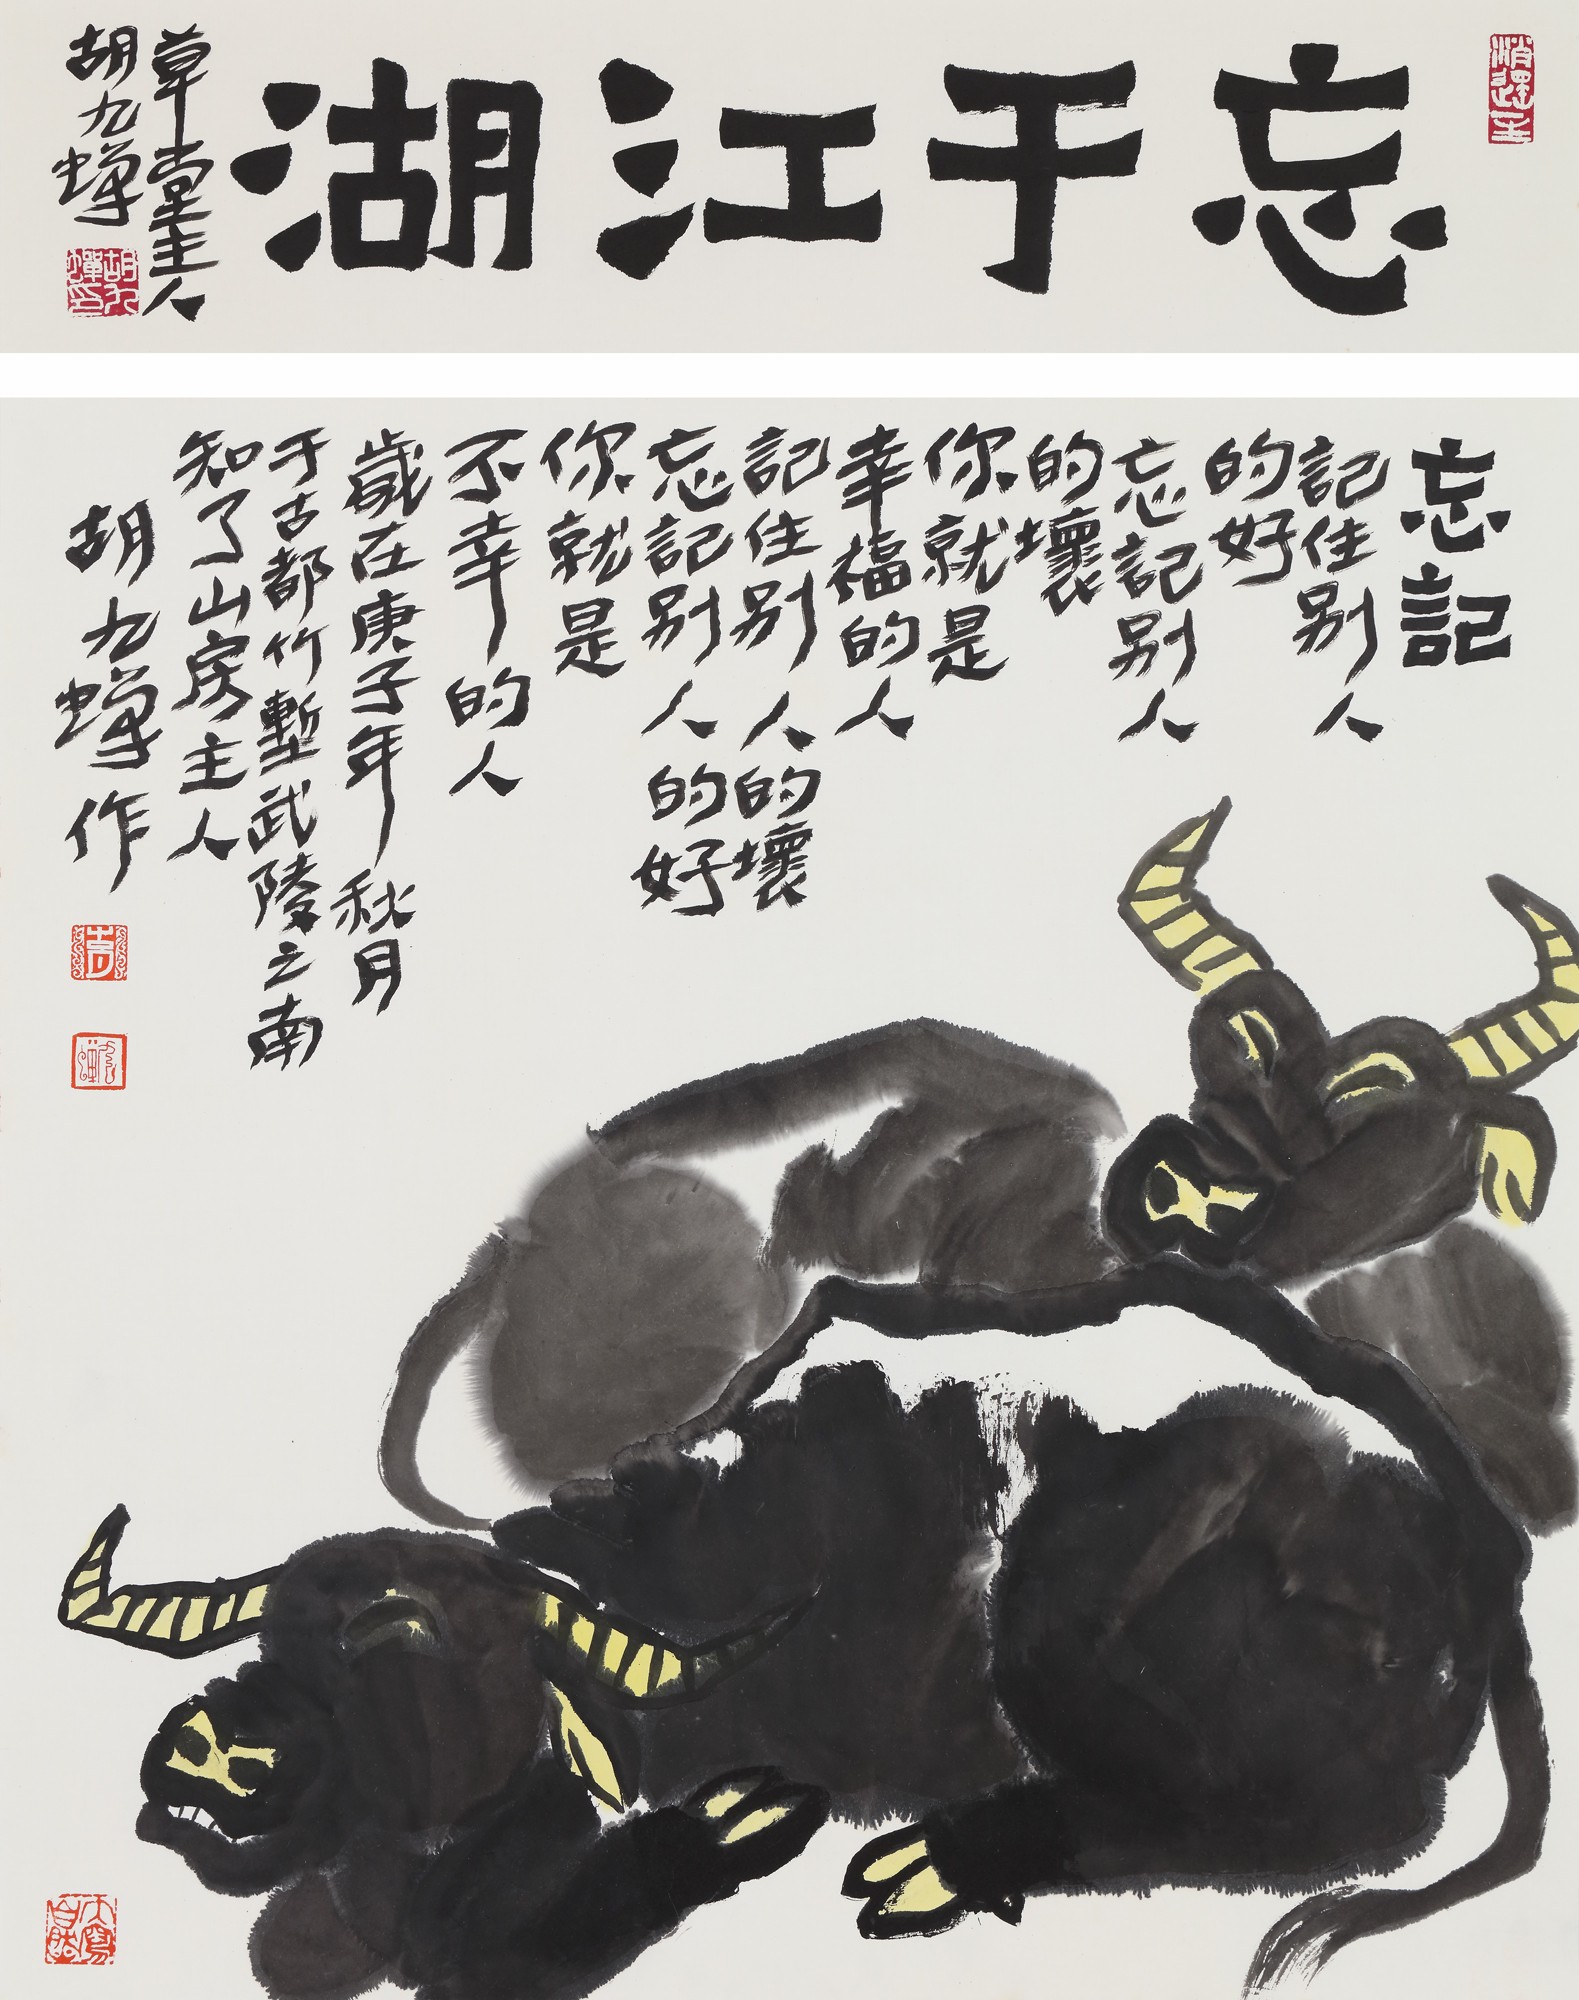 忘于江湖
草堂主人
胡九蝉
胡九蝉印
忘記
記住别人
的好
忘記别人
的壞
你就是
幸福的人
記住别人的壞
忘記别人的好
你就是
不幸的人
歲在庚子年秋月
于古都竹塹武陵之南
知了山房主人
胡九蝉作